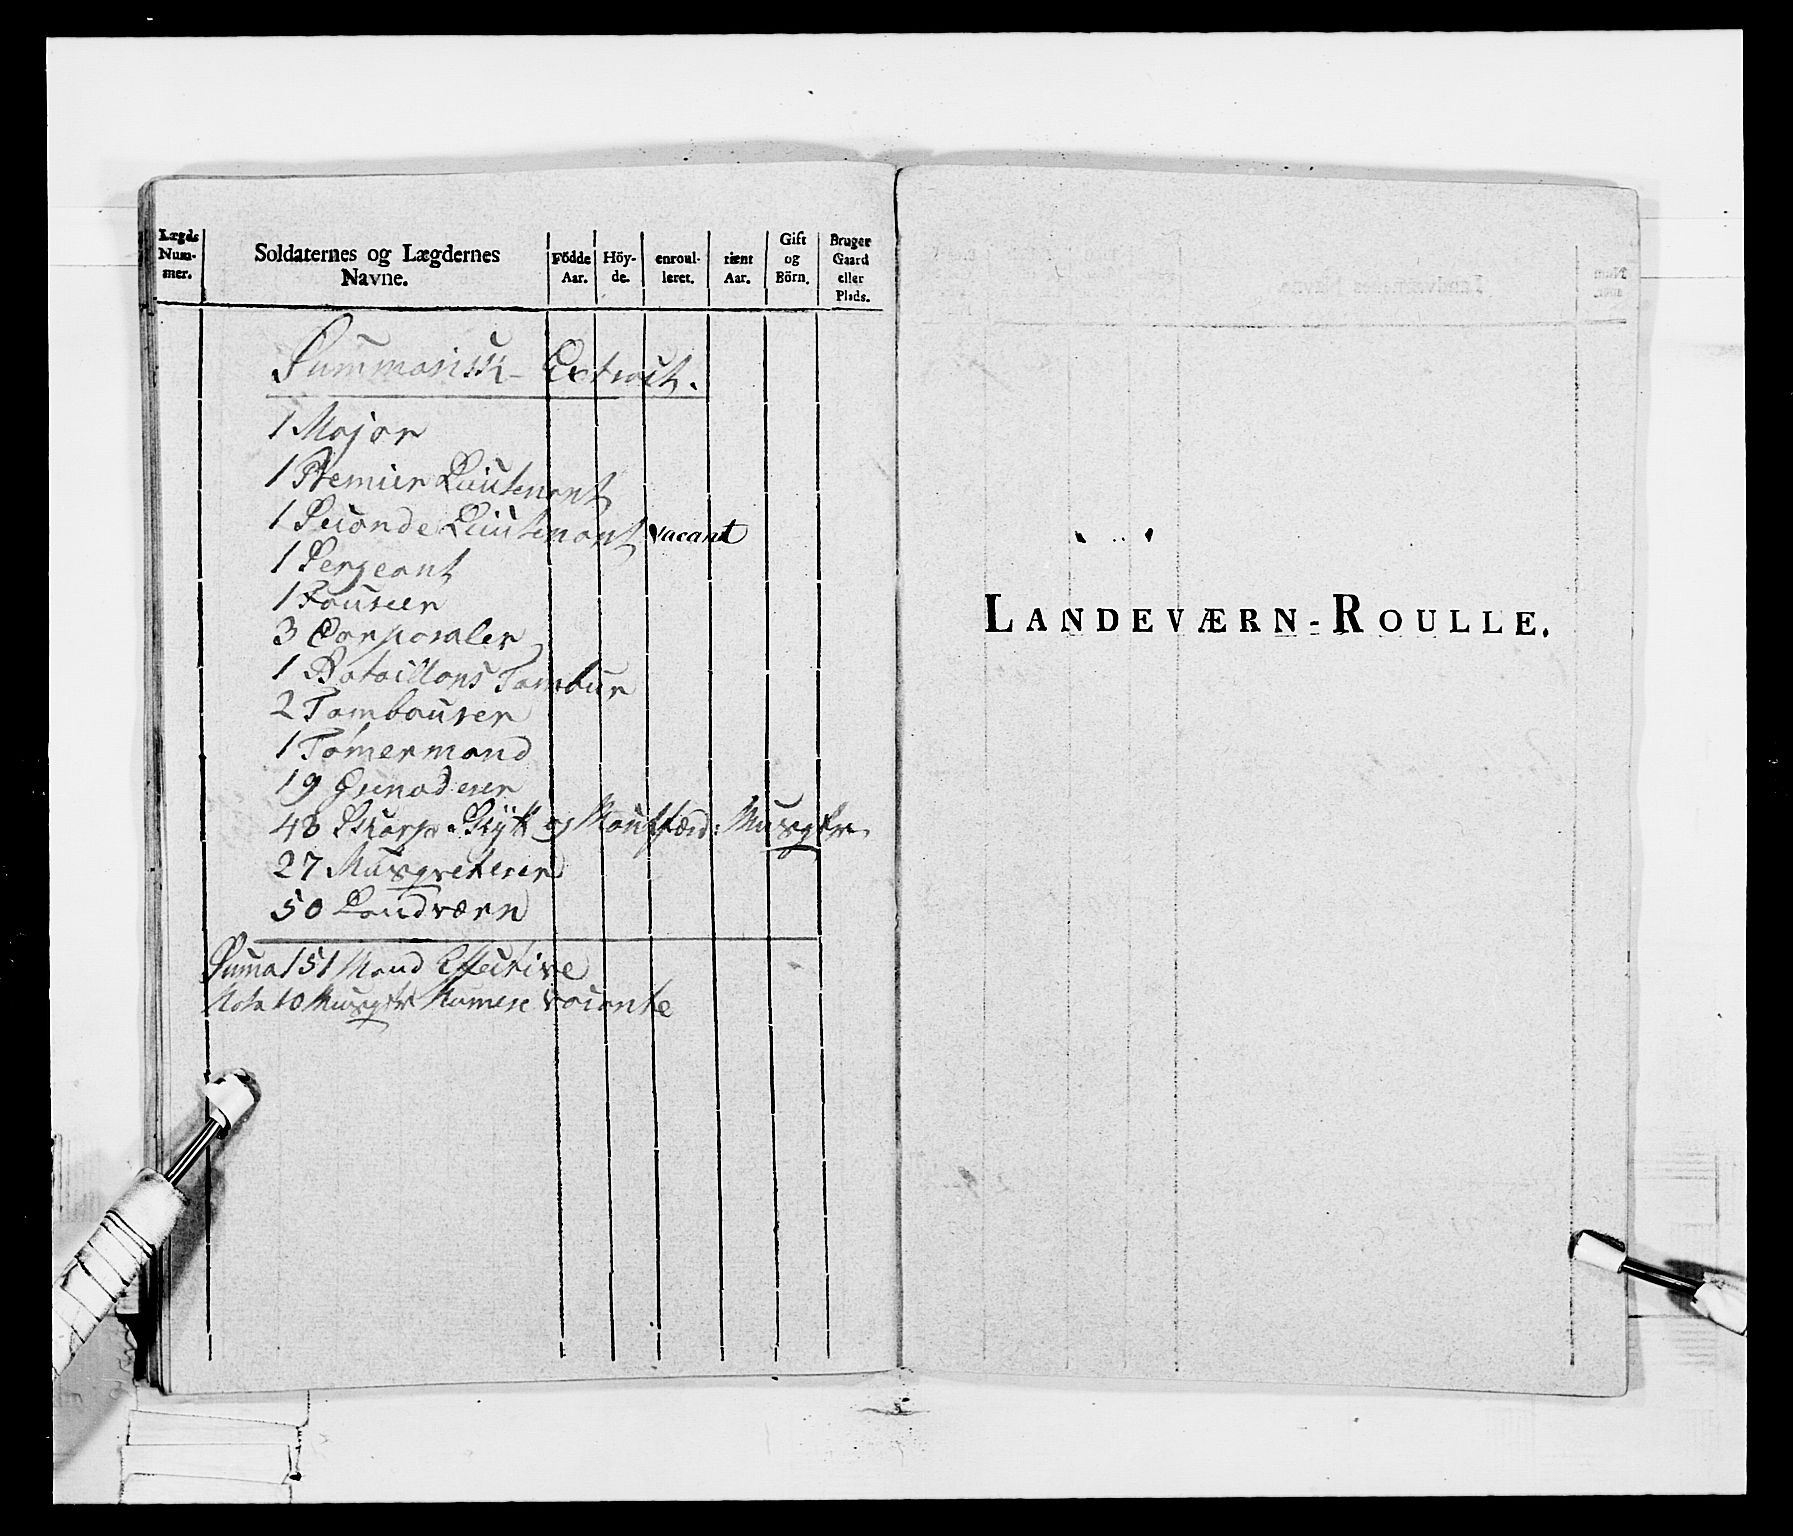 Lægds Num- mer.
Soldaternes og Lægdernes Navne.
Födde Aar.
Höy- de.
enroul- leret.
tient Aar.
Gift og Börn.
Bruger Gaard eller Plads.
Summarisk Extract.
1 Major
1 Premier Lieutenant
1 Seconde Lieutenant vacant
1 Sergeant
1 Fourer
3 Corporaler
1 Batallions Tambur
2 Tambourer
1 Tømermand
19 Grenaderer
48 Skarp Skytt og Mousqt
27 Musqveterer
50 Landværn
Suma 151 Mand Effective
Nota 10 Musqtr Numere vacante
LANDEVÆRN-ROULLE.